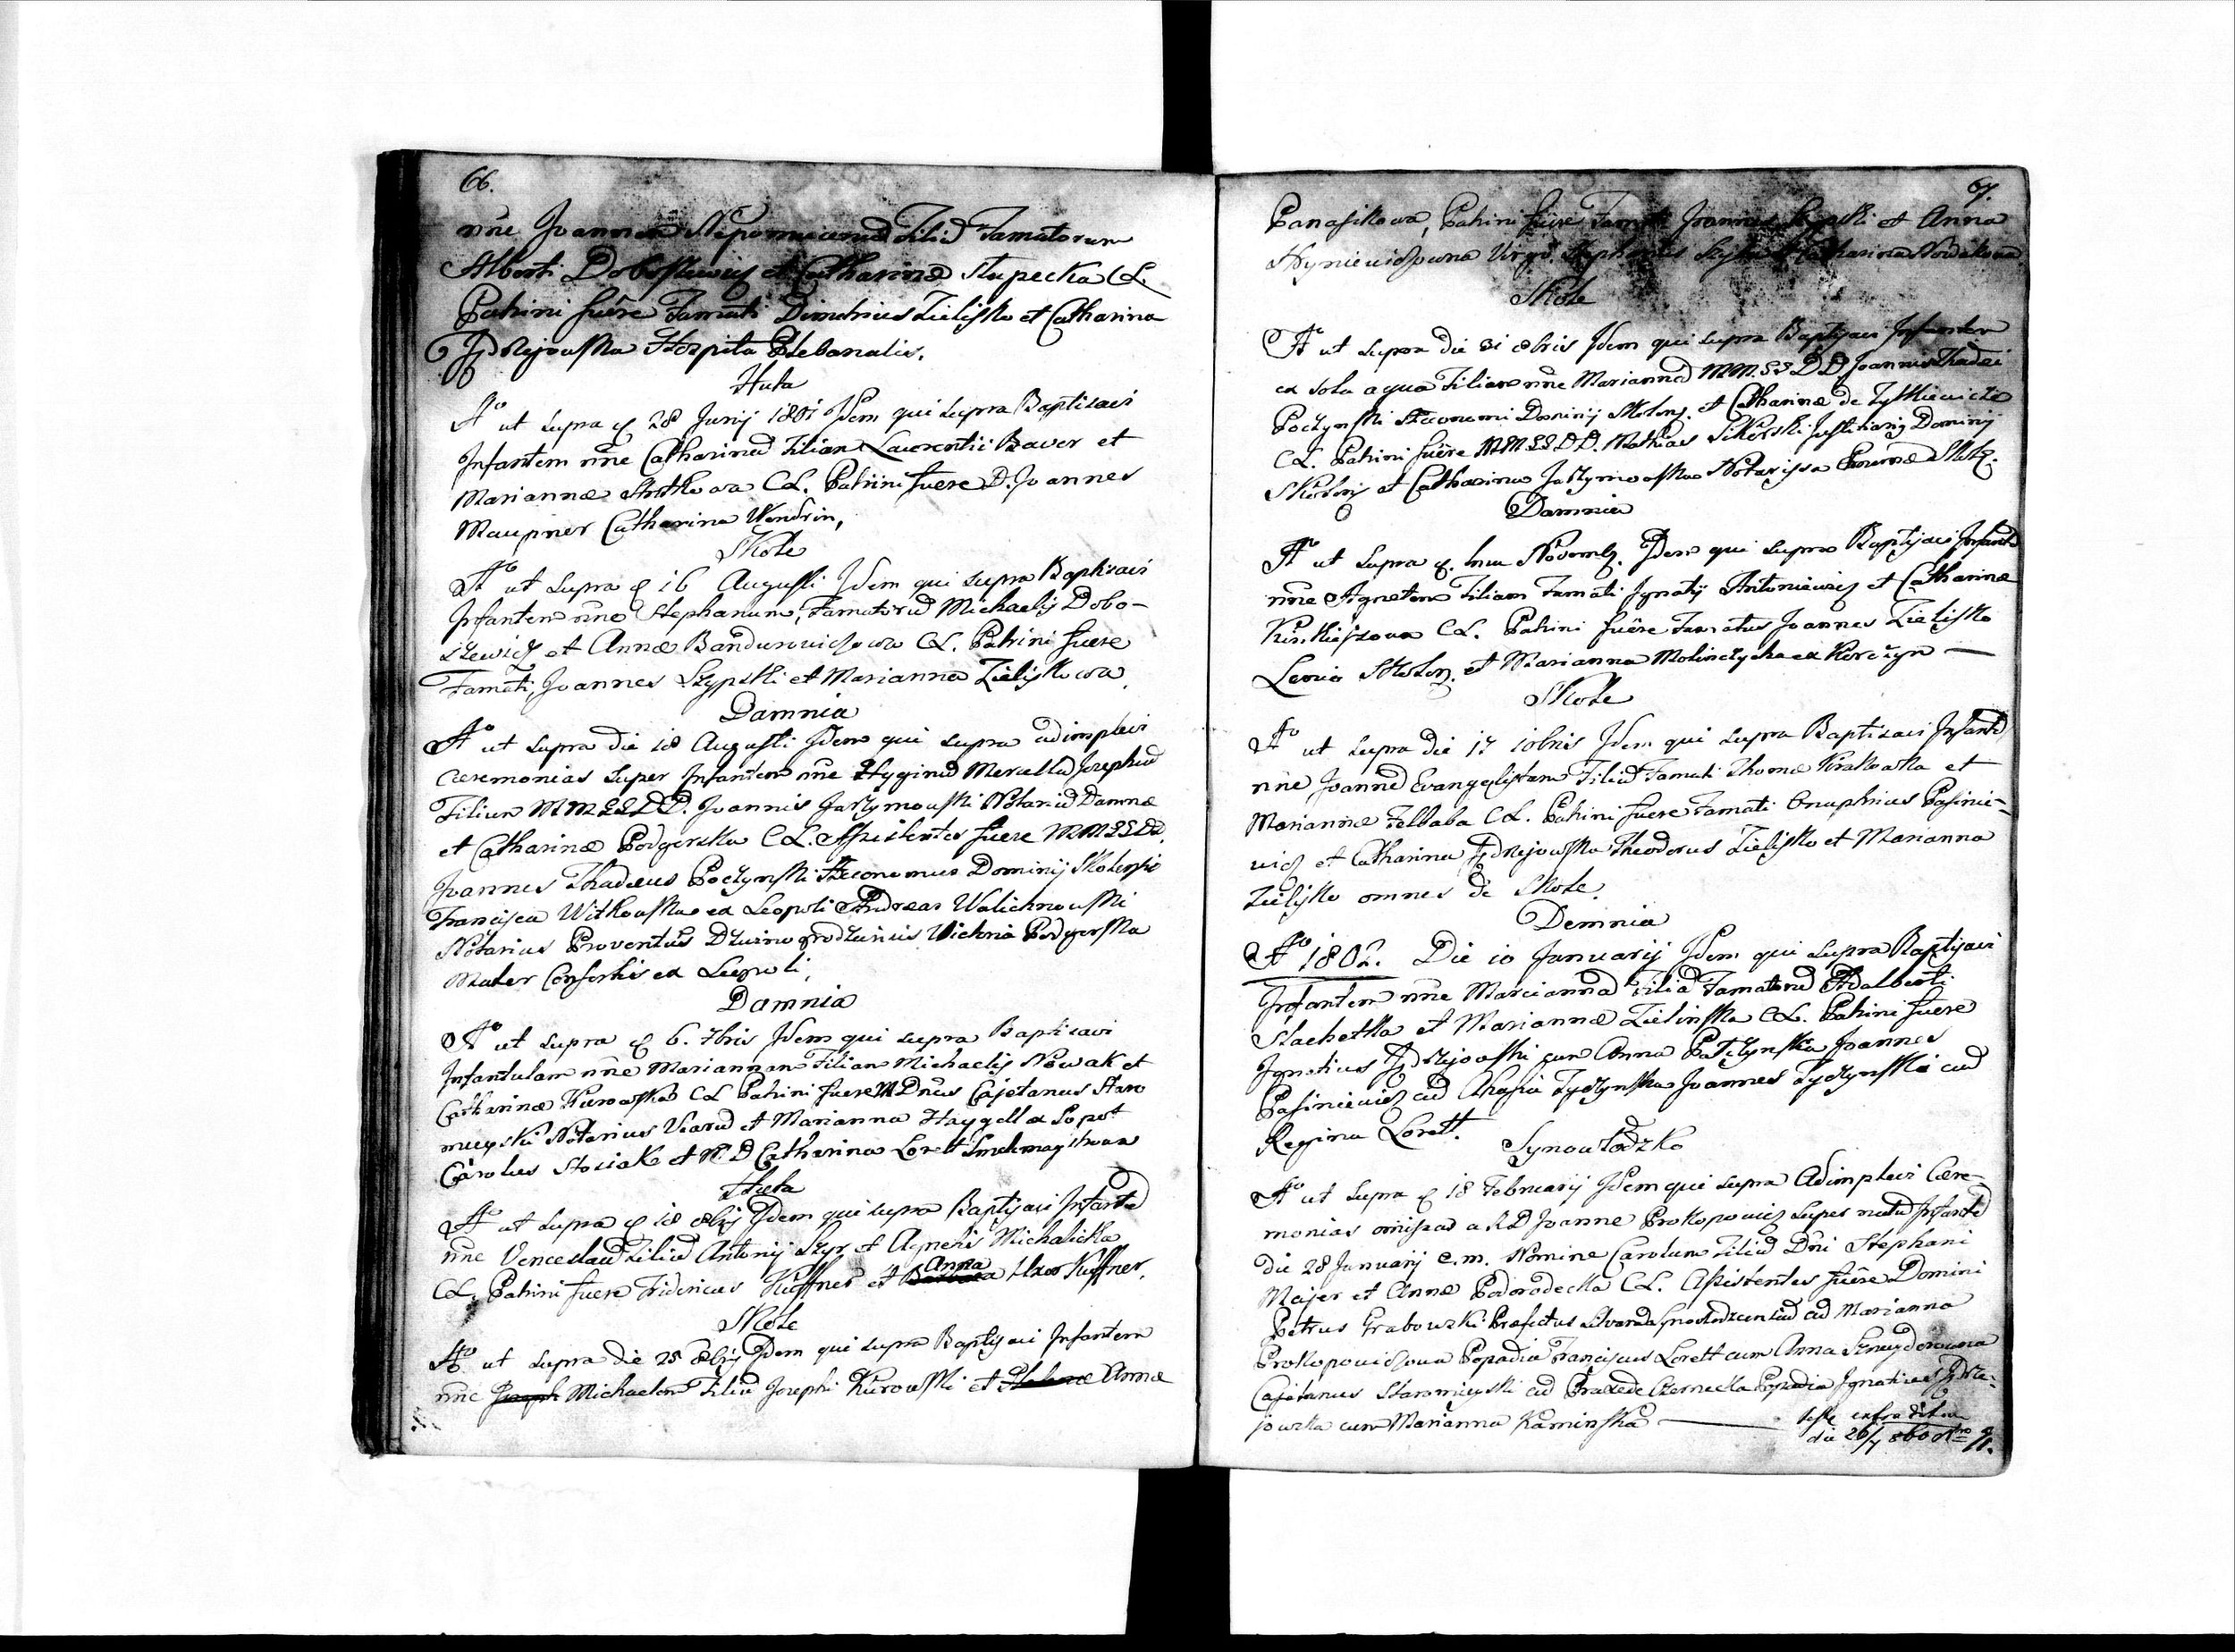 66.
nne Joannem Nepomucenū Filiū Famatorum
Alberti Doboszewicz et Catharinæ Słupecka CL.
Patrini fuêre Famati Dimitrius Zielisko et Catharina
Jędrzejowska Hospita Plebanalis.
Huta
Aº ut supra 28 Junij 1801 Idem qui supra Baptisavi
Infantem nne Catharinā Filiam Laurentii Baver et
Mariannæ CL. Patrini fuere D. Joannes
Maupner Catharina Wendrin,
Skole
Aº ut supra 16 Augusti Idem qui supra Baptisavi
Infantem nne Stephanum, Famatorū Michaelis Dobo-
szewicz et Annæ Bandurowiczowa CL. Patrini fuere
Famati, Joannes Szypski et Marianna Zieliskowa
Damnia
Aº ut supra die 18 Augusti Idem qui supra adimplevi
Cæremonias super Infantem nne Hyginū Marcellū Josephū
Filium MM SS DD. Joannis Jaszymowski Notariū Damnæ
et Catharinæ Podgorska CL. Assistentes fuere MM SS DD.
Joannes Thadæus Poczynski Œconomus Dominij Skolensis
Francisca Witkowska ex Leopoli Andreas Walichnowski
Notarius Proventûs Victoria Podgorska
Mater Consortis ex Leopoli,
Damnia
Aº ut supra 6. 7bris Idem qui supra Baptisavi
Infantulam nne Mariannam Filiam Michaelis Nowak et
Catharinæ Kurowska CL Patrini fuere M Dnus Cajetanus Staro
mieyski Notarius et Marianna Haygell ex Sopot
Carolus Stosiak et M. D Catharina Lorett
Huta
Aº ut supra 18 8bris Idem qui supra Baptisavi Infantē
nne Venceslaū Filiū Antonij Szyr et Agnetis Michalicka
CL. Patrini fuere Fridericus Kuffner et Anna Uxor Kuffner.
Skole
Aº ut supra die 25 8bris Idem qui supra Baptisavi Infantem
nne Joseph Michaelem Filiū Josephi Kurowski et Annæ
67.
Panasikowa, Patrini fuere Famati Joannes Szypski et Anna
Hyniewiczowna Virgo, Stephanus et Catharina Nowakowa
Skole
Aº ut supra die 31 8bris Idem qui supra Baptisavi Infantem
ex sola aqua Filiam nne Mariannā MM. SS DD Joannis Thadæi
Poczynski Œconomi Dominij Skolens. et Catharinæ de Zytkiewicze
CL. Patrini fuêre MM SS DD. Mathias Sikorski Justitiarij Dominij
Skolens et Catharina Jaszymowska Notarissa
Damnia
Aº ut supra Novemb. Idem qui supra Baptisavi Infantē
nne Agnetem Filiam Famati Ignatij Antoniewicz et Catharinæ
CL. Patrini fuêre Famatus Joannes Zielisko
et Marianna Molinczycha ex Korczyn —
Skole
Aº ut supra die 17 10bris Idem qui supra Baptisavi Infantē
nne Joannē Evangelistam Filiū Famati Thomæ Krakowka et
Mariannæ Fellaba CL. Patrini fuere Famati Onuphrius Pasinie-
wicz et Catharina Jędrzejowska Theodorus Zielisko et Marianna
Zielisko omnes de Skole.
Demnia
Aº 1802. Die 10 Januarij Idem qui supra Baptisavi
Infantem nne Mariannā Filiā Famatorū Adalberti
Stachetka et Mariannæ Zielinska CL. Patrini fuere
Ignatius Jędrzejowski cum Anna Patzynska Joannes
Pasiniewicz cū Thasia Tyczynska Joannes Tyczynski cū
Regina Lorett.
Synowłodzko
Aº ut supra 18 Februarij Idem qui supra Adimplevi Cære-
monias omissas a R D Joanne Prokopowicz super natū Infantē
die 28 Januarij e. m. Nomine Carolum Filiū Dni Stephani
Majer et Annæ Podorodecka CL. Assistentes fuêre Domini
Petrus Grabowski Præfectus cū Marianna
Prokopowiczowa Popadia Franciscus Lorett cum Anna
Cajetanus Staromieyski cū Praxede Czernecka Popadia Ignatius Jędrze-
jowska cum Marianna Kaminska —
die 26/7 860